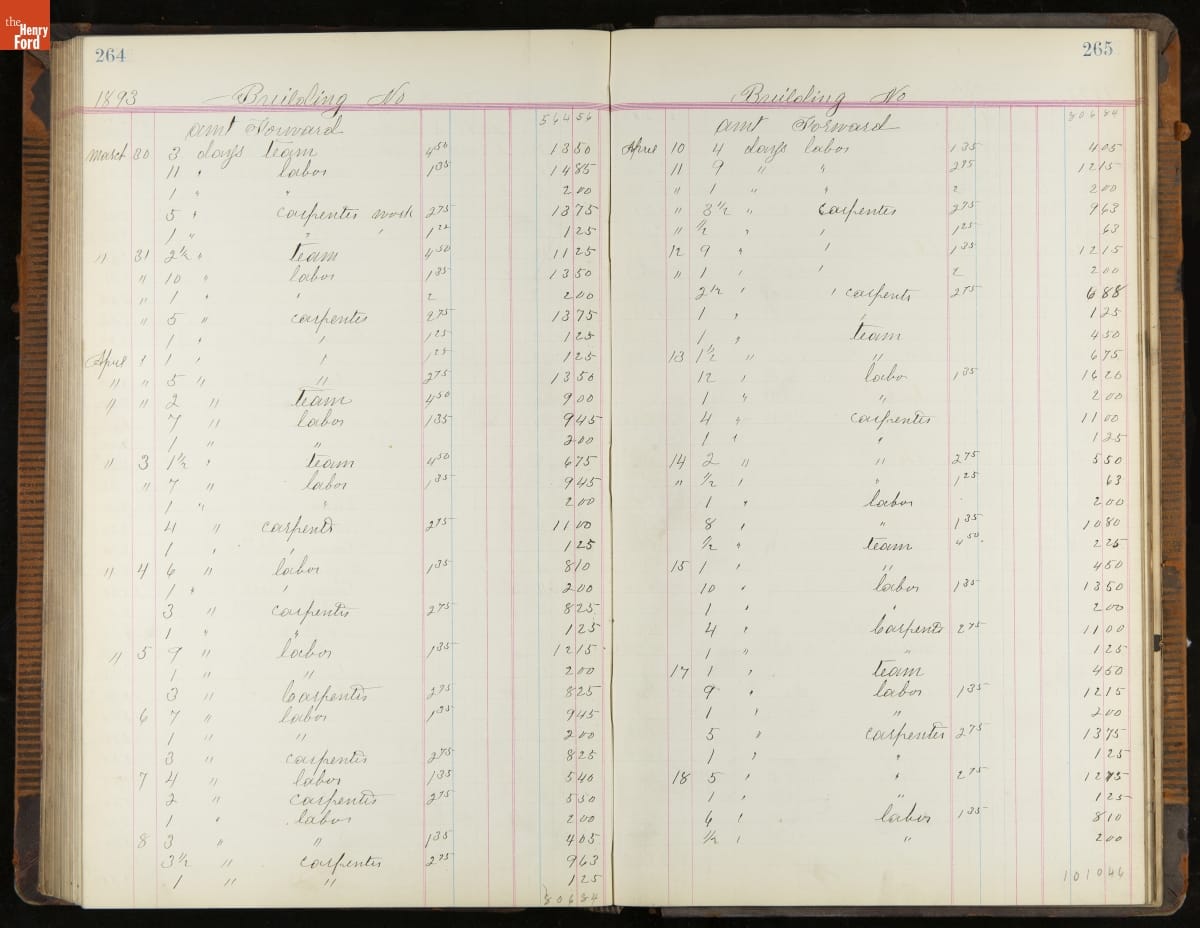 the Henry Ford
264
1893 Building No
amt Forward 564 56
March 30 3 days team 4 50 13 50
11 " labor 1 35 14 85
1 " " 2 00
5 " carpenter work 2 75 13 75
1 " " " 1 25
" 31 2 1/2 " team 4 50 11 25
" 10 " labor 1 35 13 50
" 1 " " 2 2 00
" 5 " carpenter 2 75 13 75
1 " " 1 25 1 25
April 1 1 " " 1 25 1 25
" " 5 " " 2 75 13 50
" " 2 " team 4 50 9 00
7 " labor 1 35 9 45
1 " " 2 00
" 3 1 1/2 " team 4 50 6 75
" 7 " labor 1 35 9 45
1 " " 2 00
4 " carpentr 2 75 11 00
1 " " 1 25
" 4 6 " labor 1 35 8 10
1 " " 2 00
3 " carpenter 2 75 8 25
1 " " 1 25
" 5 9 " labor 1 35 12 15
1 " " 2 00
3 " Carpenter 2 75 8 25
6 7 " labor 1 35 9 45
1 " " 2 00
3 " carpenter 2 75 8 25
7 4 " labor 1 35 5 40
2 " carpenter 2 75 5 50
1 " labor 2 00
8 3 " " 1 35 4 05
3 1/2 " carpenter 2 75 9 63
1 " " 1 25
806 84
265
Building No
amt Forward 806 84
April 10 4 days labor 1 35 4 05
11 9 " " 2 75 12 15
" 1 " " 2 2 00
" 3 1/2 " Carpenter 2 75 9 63
" 1/2 " " 1 25 63
12 9 " " 1 35 12 15
" 1 " " 2 2 00
2 1/2 " " carpentr 2 75 6 88
1 " 1 25
1 " team 4 50
13 1 1/2 " " 6 75
12 " labor 1 35 16 20
1 " " 2 00
4 " carpenter 11 00
1 " " 1 25
14 2 " " 2 75 5 50
" 1/2 " " 1 25 63
1 " labor 2 00
8 " " 1 35 10 80
1/2 " team 4 50 2 25
15 1 " " 4 50
10 " labor 1 35 13 50
1 " " 2 00
4 " Carpentr 2 75 11 00
1 " " 1 25
17 1 " team 4 50
9 " labor 1 35 12 15
1 " " 2 00
5 " carpenter 2 75 13 75
1 " " 1 25
18 5 " " 2 75 12 75
1 " " 1 25
6 " labor 1 35 8 10
1/2 " " 2 00
1010 46